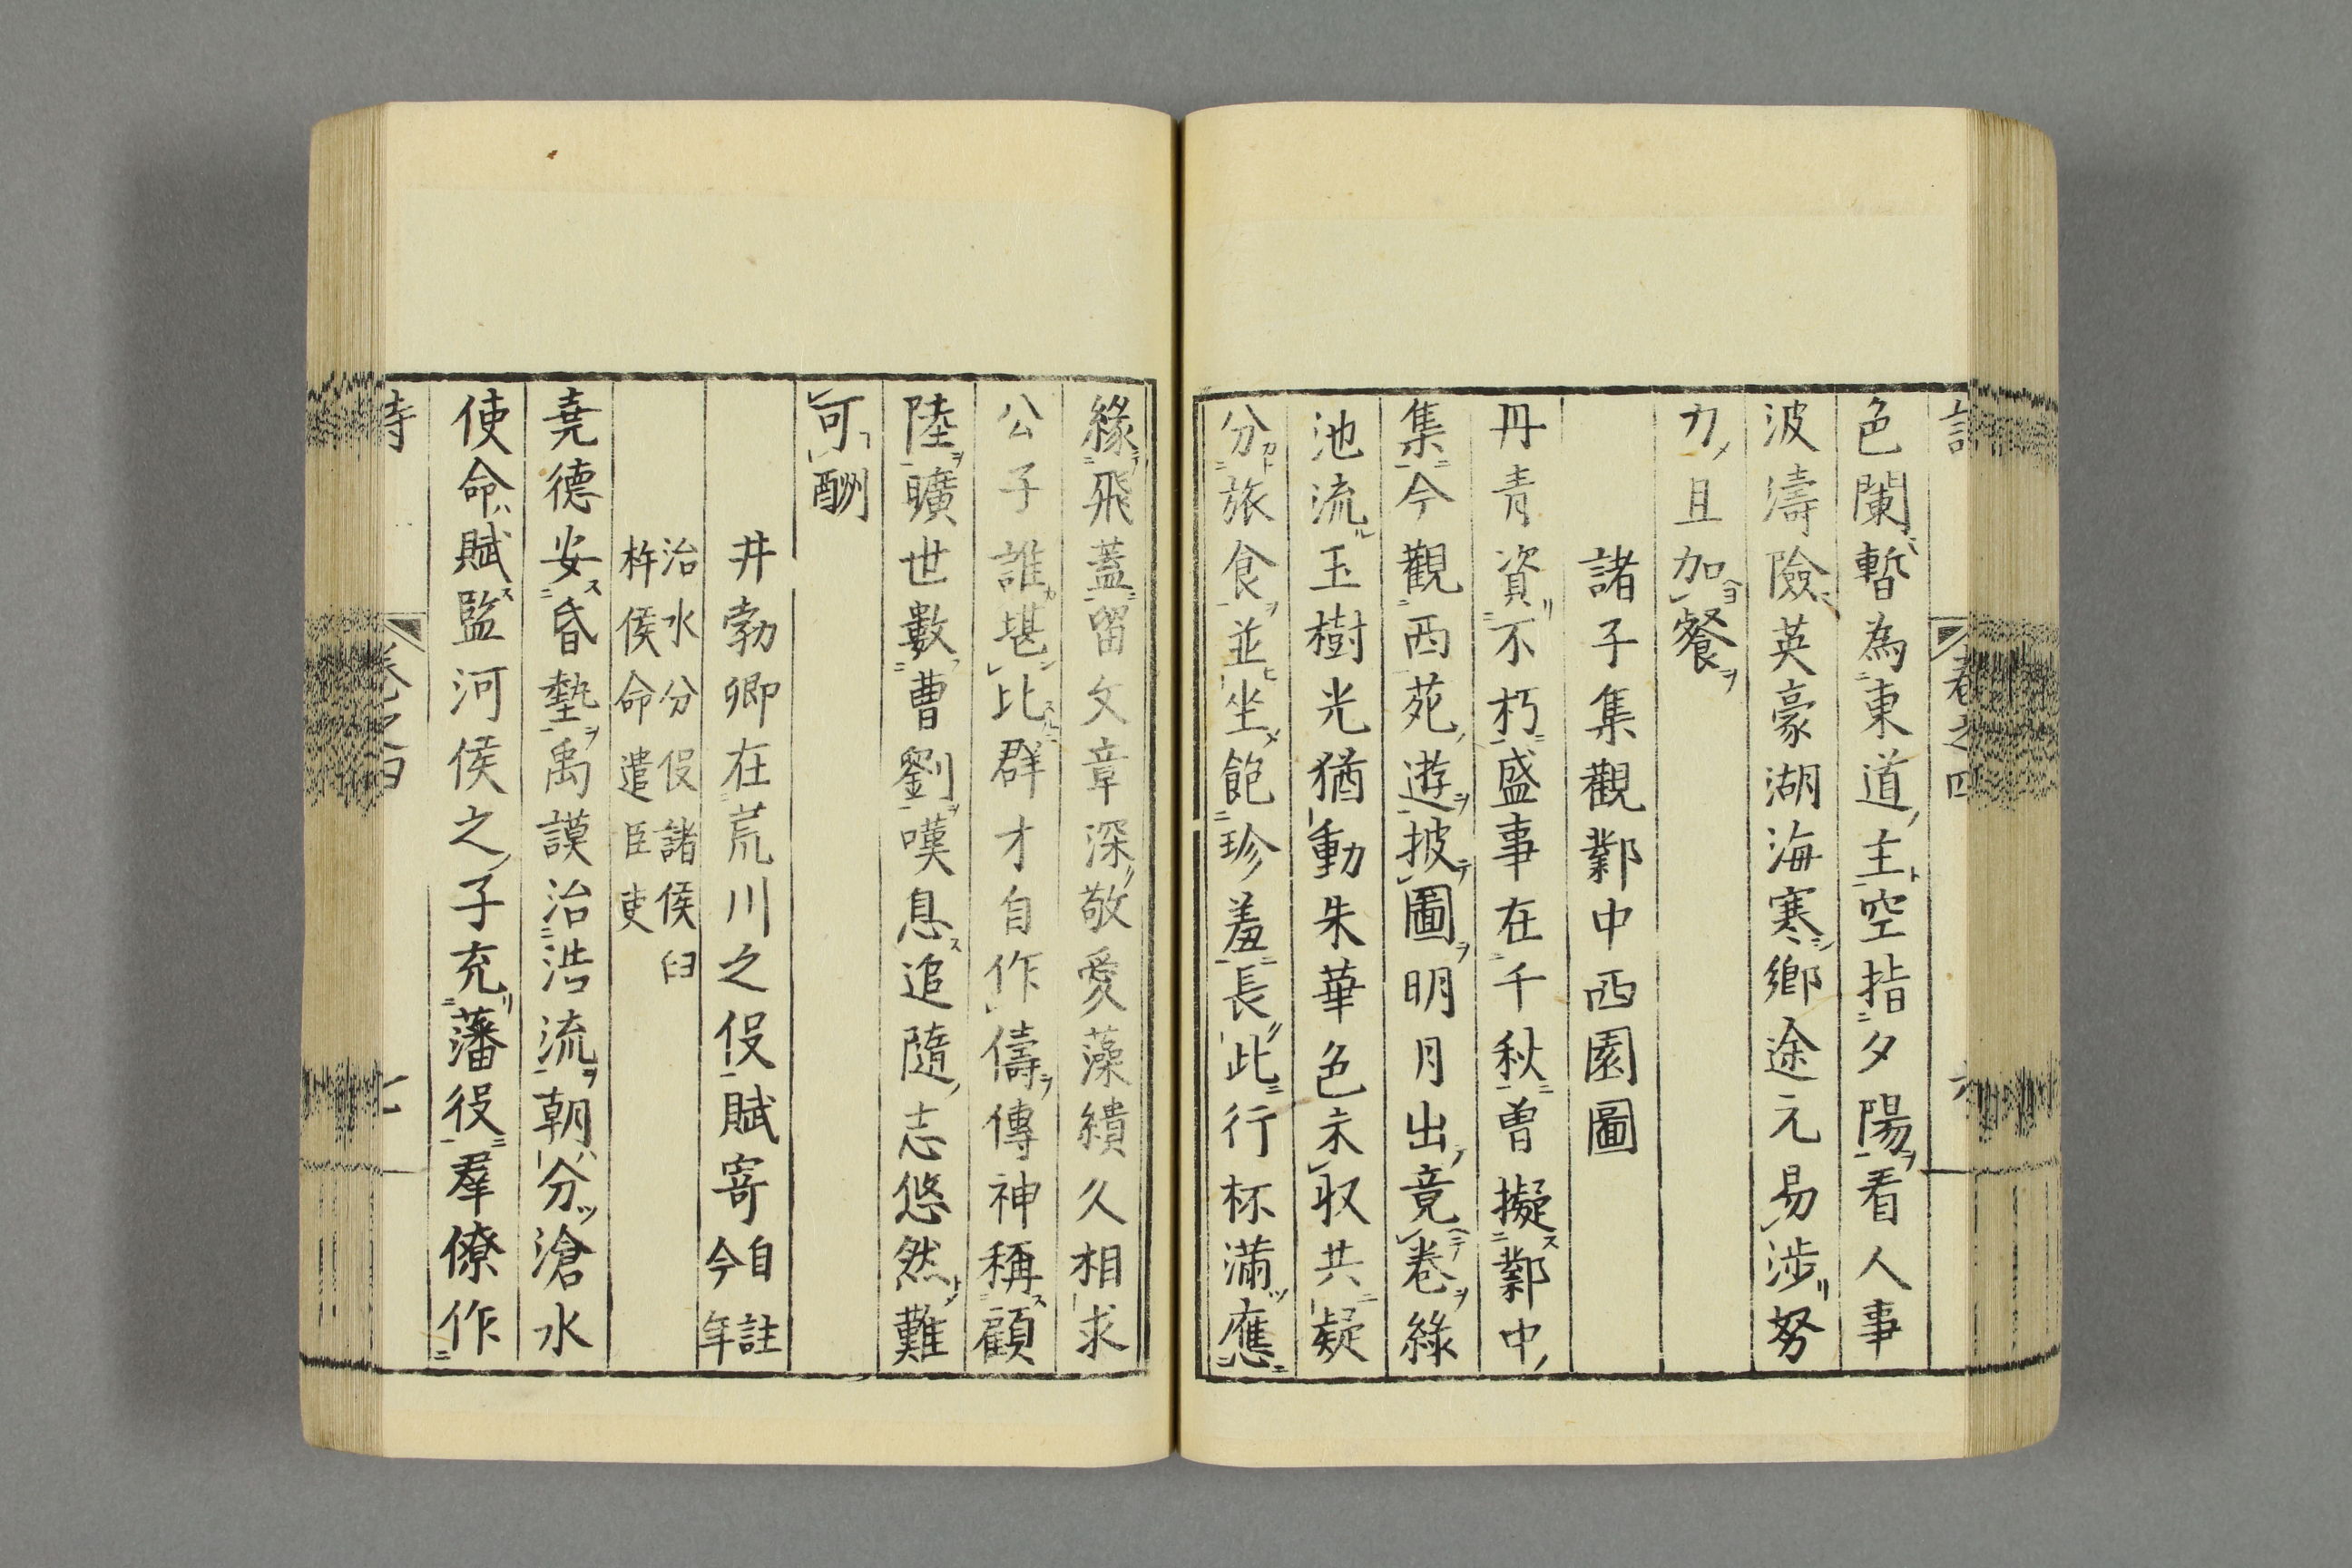 卷之四
六
色闌暫為東道主空指夕陽看人事
波濤險英豪湖海寒鄉途元易涉努
力且加餐
諸子集觀鄴中西園圖
丹青資不朽盛事在千秋曽擬鄴中
集今觀西苑遊披圖明月出竟卷綠
池流玉樹光猶動朱華色未収共疑
分旅食並坐飽珍羞長此行杯滿應
緣飛蓋留文章深敬愛藻繢久相求
公子誰堪比群才自作儔傳神稱顧
陸曠世數曹劉嘆息追隨志悠然難
可酬
井勃卿在荒川之役賦寄自註今年
治水分役諸侯臼
杵侯命遣臣吏
堯德安昏墊禹謨治浩流朝分滄水
使命賦監河侯之子充藩役羣僚作
七